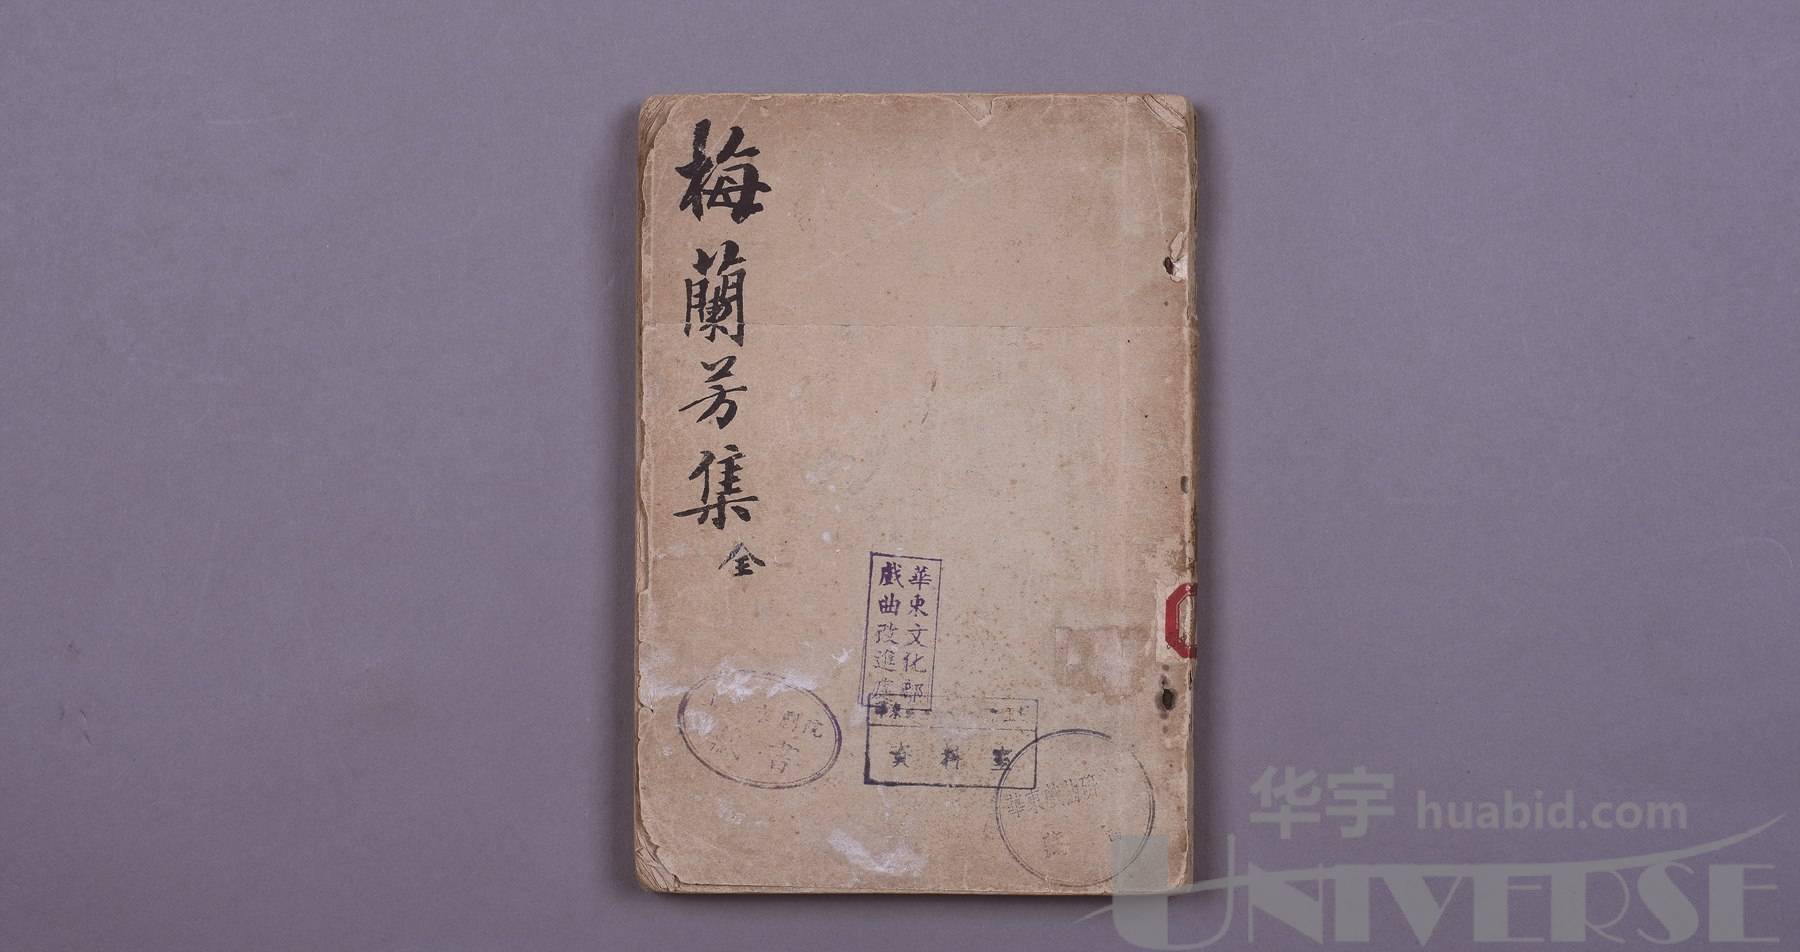 梅蘭芳集
全
華東文化部
戲曲改進處
資料室
华宇 huabid.com
UNIVERSE